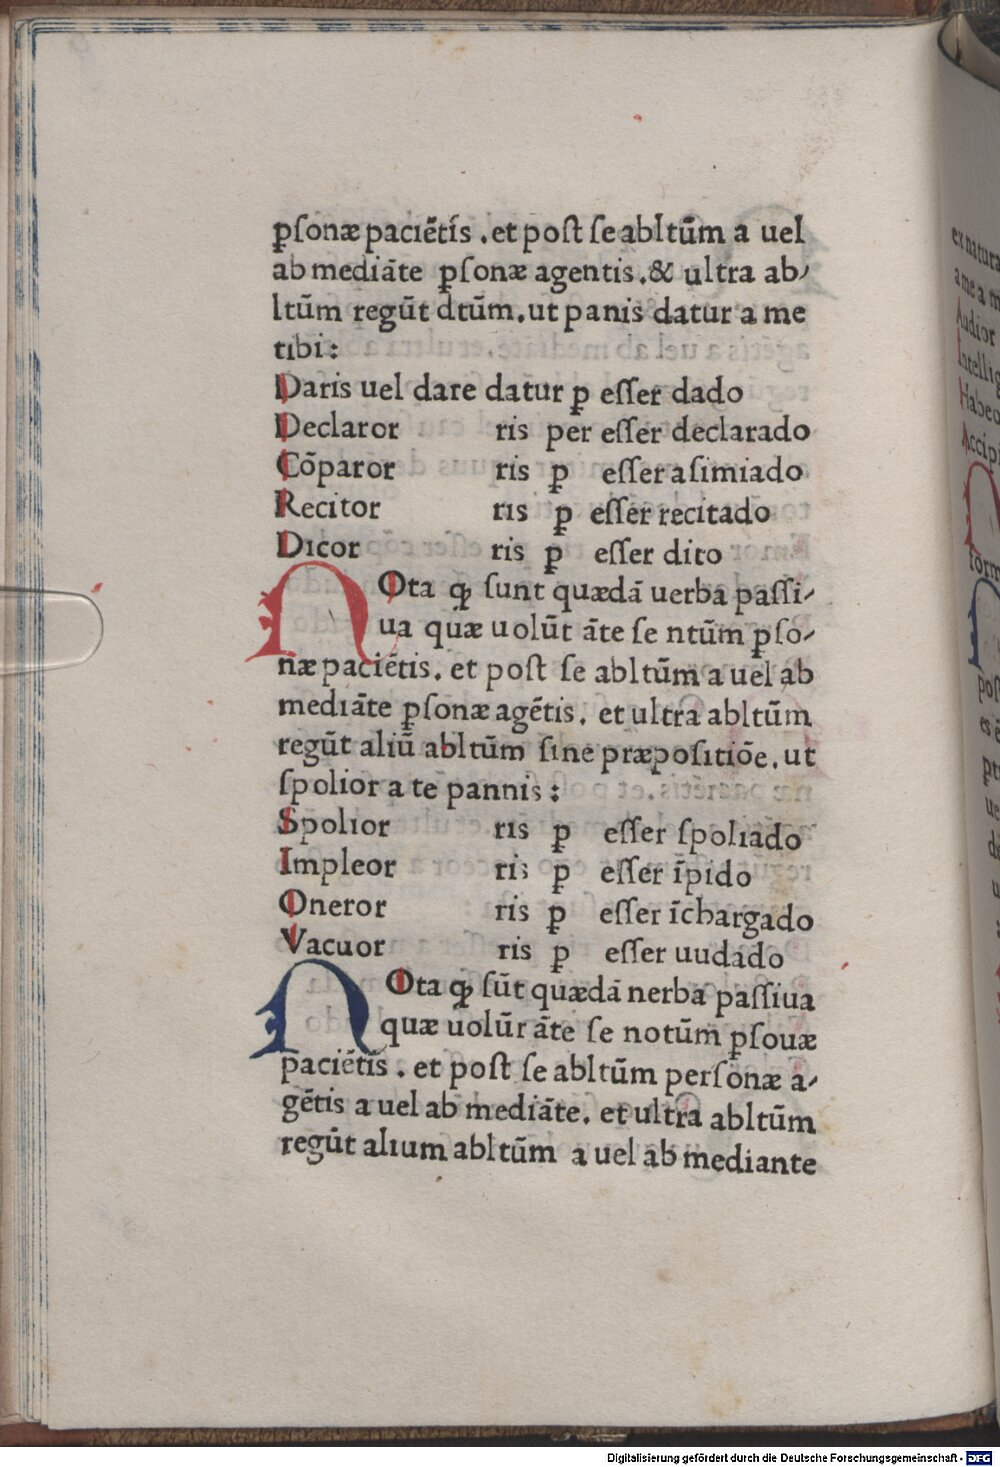 ꝑſonæ paciētís .et poſt ſe abltūm a uel
ab mediāte ꝑſonæ agentis.& ultra ab⸗
ltūm regūt dtūm.ut panis datur a me
tibi:
Daris uel dare datur ꝑ eſſer dado
Declaror ris per eſſer declarado
Cōparor ris ꝑ eſſer aſimiado
Recitor ris ꝑ eſſer recitado
Dicor ris ꝑ eſſer dito
NOta ꝙ ſunt quædā uerba paſſi⸗
ua quæ uolūt āte ſe ntūm ꝑſo⸗
næ paciētis. et poſt ſe abltūm a uel ab
mediāte ꝑſonæ agētis. et ultra abltūm
regūt aliū abltūm ſine præpoſitiōe.ut
ſpolior a te pannis:
Spolior ris ꝑ eſſer ſpoliado
Impleor ris ꝑ eſſer īpido
Oneror ris ꝑ eſſer īchargado
Vacuor ris ꝑ eſſer uudado
NOta ꝙ ſūt quædā nerba paſſiua
quæ uolūr āte ſe notūm ꝑſouæ
paciētis. et poſt ſe abltūm perſonæ a⸗
gētis a uel ab mediāte. et ultra abltūm
regūt alium abltūm a uel ab mediante
ex natura
a me a m
Audior
Intellig
Habeo
Accipi
form
poſ
es e
Digitalisierung gefördert durch die Deutsche Forschungsgemeinschaft - DFG